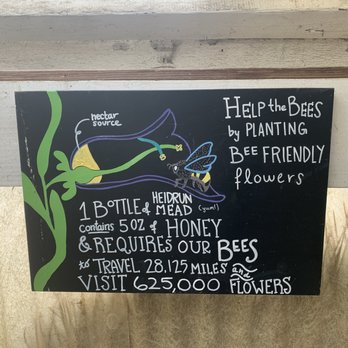 nectar
source
HELP the BEES
by PLANTING
BEE FRIENDLY
flowers
1 BOTTLE of HEIDRUN
MEAD (yum!)
contains 5 OZ of HONEY
& REQUIRES OUR BEES
to TRAVEL 28,125 MILES and
VISIT 625,000 FLOWERS